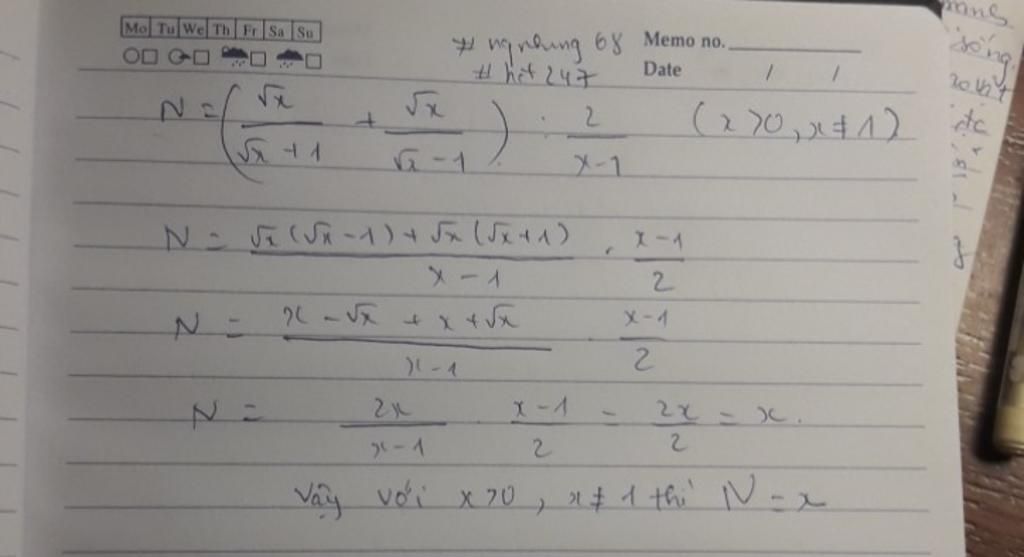 Mo Tu We Th Fr Sa Su
# ngnhung 68 Memo no.
# hit 247 Date / /
N = (√x/(√x + 1) + √x/(√x - 1)) : 2/(x - 1) (x > 0, x ≠ 1)
N = (√x(√x - 1) + √x(√x + 1))/(x - 1) . (x - 1)/2
N = (x - √x + x + √x)/(x - 1) . (x - 1)/2
N = 2x/(x - 1) . (x - 1)/2 = 2x/2 = x.
Vậy với x > 0, x ≠ 1 thì N = x